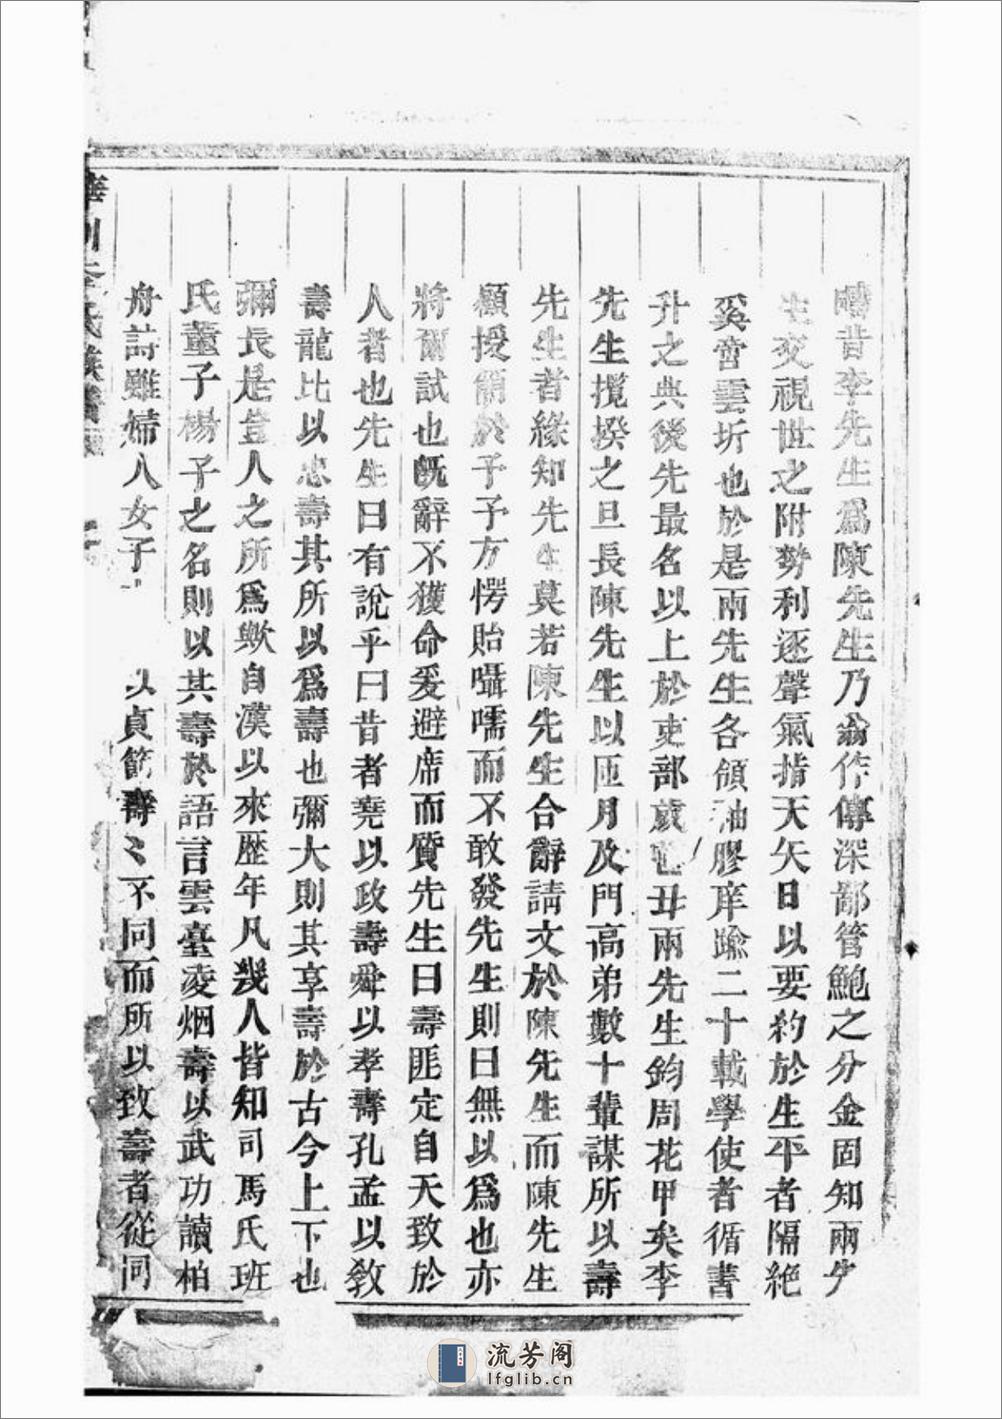 疇昔李先生爲陳先生乃翁作傳深鄙管鮑之分金固知兩先
生交視世之附勢利逐聲氣指天矢日以要約於生平者隔絶
奚啻雲圻也於是兩先生各領袖膠庠踰二十載學使者循書
升之典後先最名以上於吏部歲丑兩先生鈞周花甲矣李
先生攬揆之旦長陳先生以匝月及門高弟數十輩謀所以壽
先生者緣知先生莫若陳先生合辭請文於陳先生而陳先生
顧授簡於予予方愕眙囁嚅而不敢發先生則曰無以爲也亦
將爾試也旣辭不獲命爰避席而質先生曰壽匪定自天致於
人者也先生曰有說乎曰昔者堯以政壽舜以孝壽孔孟以教
壽龍比以忠壽其所以爲壽也彌大則其享壽於古今上下也
彌長是豈人之所爲歟自漢以來歷年凡幾人皆知司馬氏班
氏董子楊子之名則以其壽於語言雲臺凌烟壽以武功讀柏
舟詩雖婦人女子以貞節壽〻不同而所以致壽者從同
李氏族譜
流芳阁
lfglib.cn